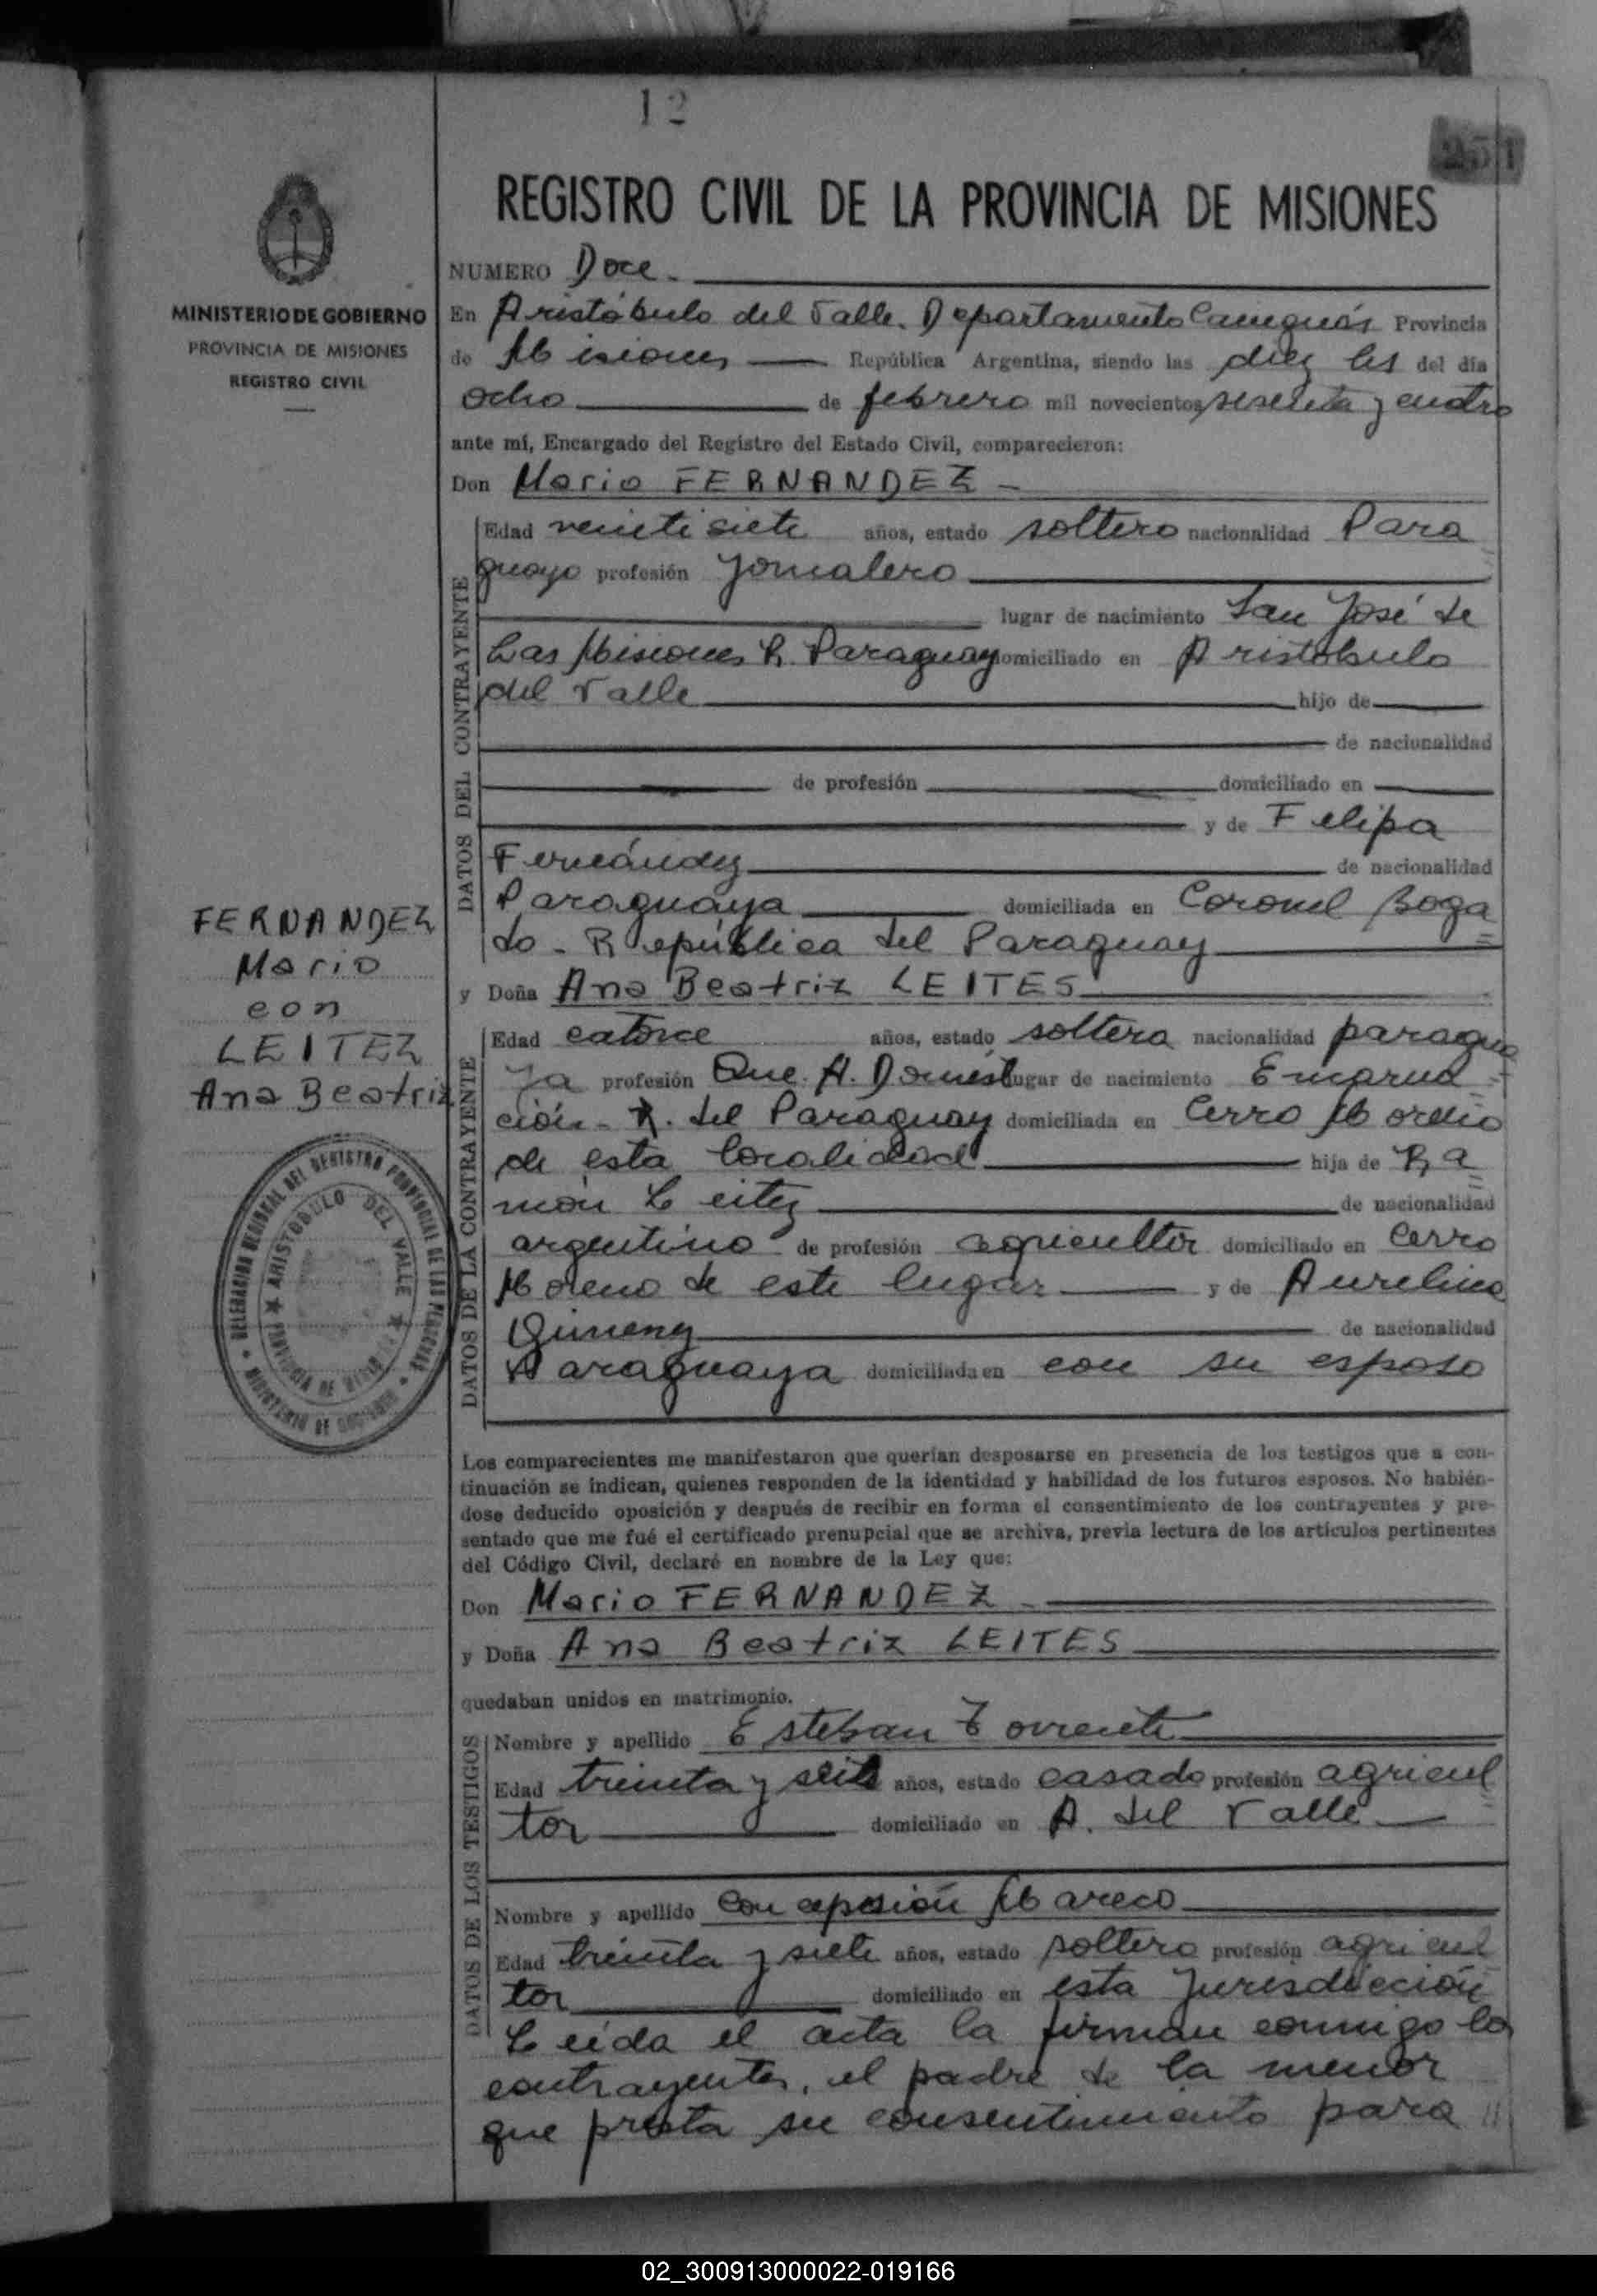 12
251
REGISTRO CIVIL DE LA PROVINCIA DE MISIONES
MINISTERIO DE GOBIERNO
PROVINCIA DE MISIONES
REGISTRO CIVIL
NUMERO Doce
En Aristóbulo del Valle. Departamento Cainguás Provincia
de Misiones República Argentina, siendo las diez hs del día
ocho de febrero mil novecientos sesenta y cuatro
ante mí, Encargado del Registro del Estado Civil, comparecieron:
Don Mario FERNANDEZ
DATOS DEL CONTRAYENTE
Edad veintisiete años, estado soltero nacionalidad Para
guayo profesión Jornalero
lugar de nacimiento San José de
Las Misiones R. Paraguay domiciliado en Aristobulo
del Valle hijo de
de nacionalidad
de profesión domiciliado en
y de Felipa
Fernández de nacionalidad
Paraguaya domiciliada en Coronel Boga
do - República del Paraguay
y Doña Ana Beatriz LEITES
FERNANDEZ
Mario
con
LEITEZ
Ana Beatriz
DATOS DE LA CONTRAYENTE
Edad catorce años, estado soltera nacionalidad paragua
ya profesión Que. A. Domést lugar de nacimiento Encarna
ción - R. del Paraguay domiciliada en Cerro Moreno
de esta localidad hija de Ra
món Leitez de nacionalidad
argentino de profesión agricultor domiciliado en Cerro
Moreno de este lugar y de Aurelina
Gimenez de nacionalidad
Paraguaya domiciliada en con su esposo
DELEGACION REGIONAL DEL REGISTRO PROVINCIAL DE LAS PERSONAS
MINISTERIO DE GOBIERNO
ARISTOBULO DEL VALLE
PROVINCIA DE MISIONES
Los comparecientes me manifestaron que querían desposarse en presencia de los testigos que a con-
tinuación se indican, quienes responden de la identidad y habilidad de los futuros esposos. No habién-
dose deducido oposición y después de recibir en forma el consentimiento de los contrayentes y pre-
sentado que me fué el certificado prenupcial que se archiva, previa lectura de los artículos pertinentes
del Código Civil, declaré en nombre de la Ley que:
Don Mario FERNANDEZ
y Doña Ana Beatriz LEITES
quedaban unidos en matrimonio.
DATOS DE LOS TESTIGOS
Nombre y apellido Esteban Torrente
Edad treinta y seis años, estado casado profesión agricul
tor domiciliado en A. del Valle
Nombre y apellido Concepsión Mareco
Edad treinta y siete años, estado soltero profesión agricul
tor domiciliado en esta Jurisdicción
Leída el acta la firman conmigo los
contrayentes, el padre de la menor
que presta su consentimiento para
02_300913000022-019166